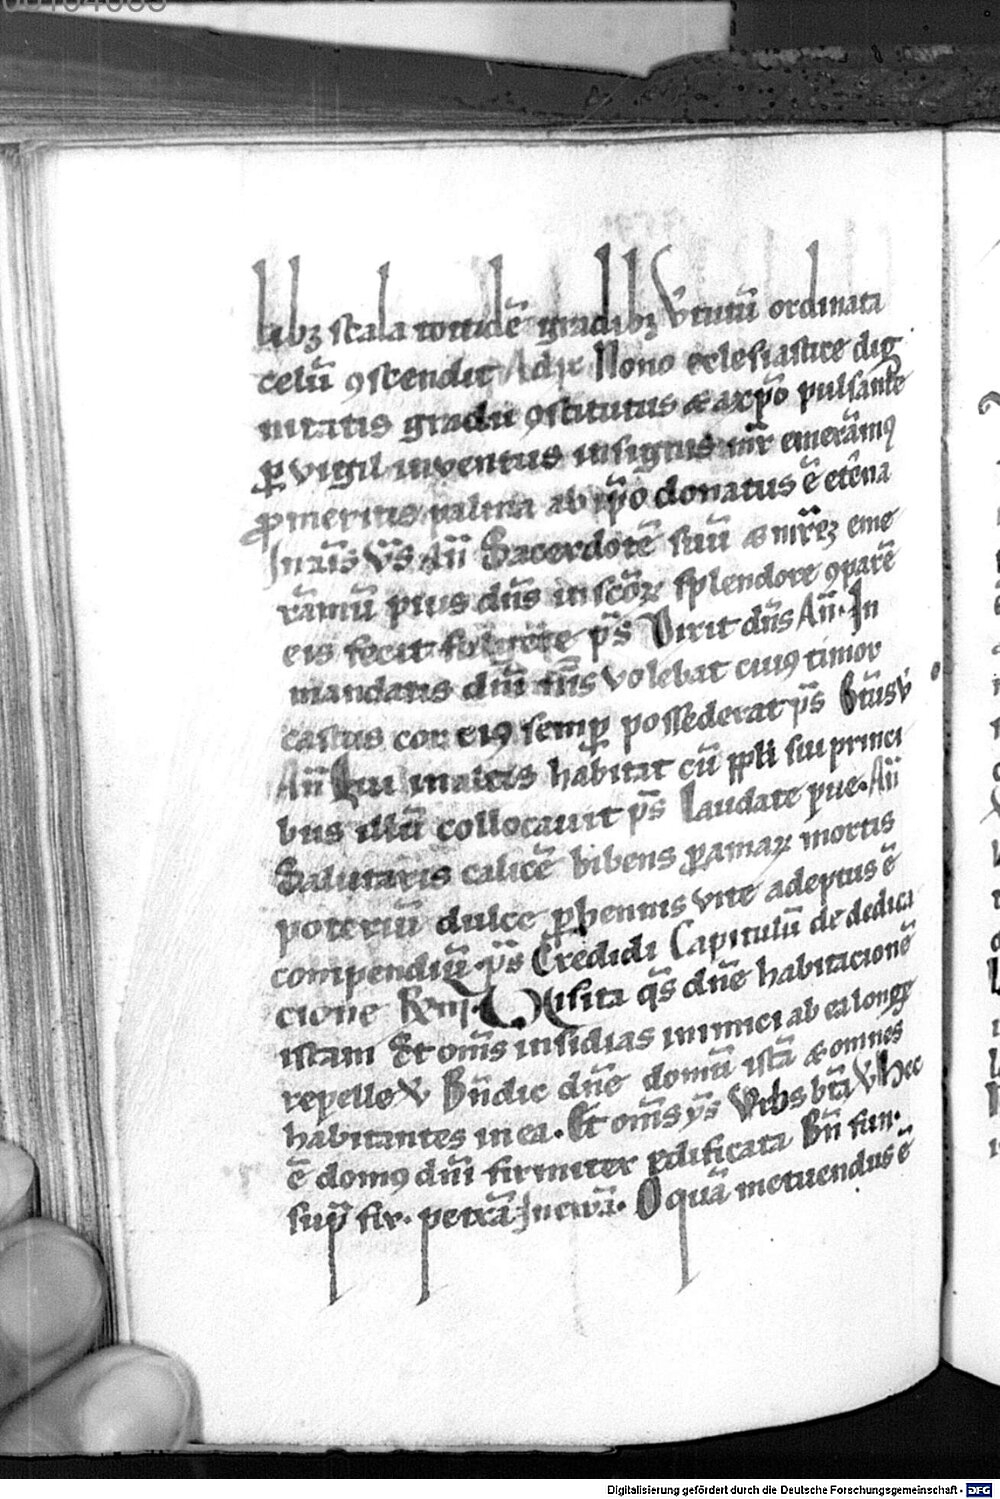 libꝫ scala totidē gradibꝫ v̄tutū ordinata
celū ꝯscendit Ad ir Nono ecclesiastice dig
nitatis gradu ꝯstitutus & a xp̄o pulsante
ꝑvigil inventus insignis mr̄ emerāmꝰ
ꝓ meritis palma ab ip̄o donatus ē et̄na
In aīs v̄s Añ Sacerdotē suū & mr̄eꝫ eme
rāmū pius dn̄s in scōꝝ splendore ꝯparē
eis fecit fulgere ps̄ Dixit dn̄s Añ. In
mandatis dn̄i nīis volebat cuiꝰ timor
castus cor eiꝰ semꝑ possederat ps̄ Bt̄us v̇
Añ Qui in altis habitat cū ppl̄i sui princi
bus illū collocavit ps̄ Laudate pue. Añ
Salutaris calicē bibens ꝓ amaꝝ mortis
poteriū dulce ꝑhennis vite adeptus ē
compendiū. ps̄ Credidi Capitulū de dedica
cione Rm̄ Visita qs̄ dn̄e habitacionē
istam Et om̄s insidias inimici ab ea longe
repelle V Bn̄dic dn̄e domū istā & omnes
habitantes in ea. Et om̄s ys̄ Urbs bt̄a V Hec
ē domꝰ dn̄i firmiter edificata Bn̄ fun.
sup̄ fir. petrā Jn ewā. O quā metuendus ē
Digitalisierung gefördert durch die Deutsche Forschungsgemeinschaft - DFG